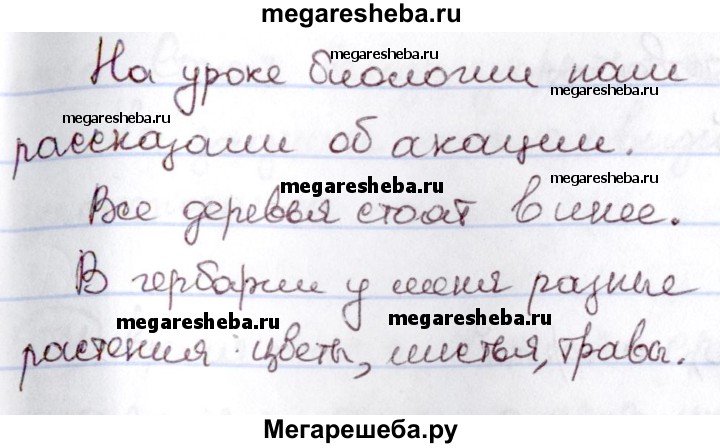 megaresheba.ru
megaresheba.ru
На уроке биологии нам
megaresheba.ru
megaresheba.ru
рассказали об акации.
megaresheba.ru
megaresheba.ru
Все деревья стоят в инее.
В гербарии у меня разные
megaresheba.ru
megaresheba.ru
растения: цветы, листья, травы.
Мегарешеба.ру